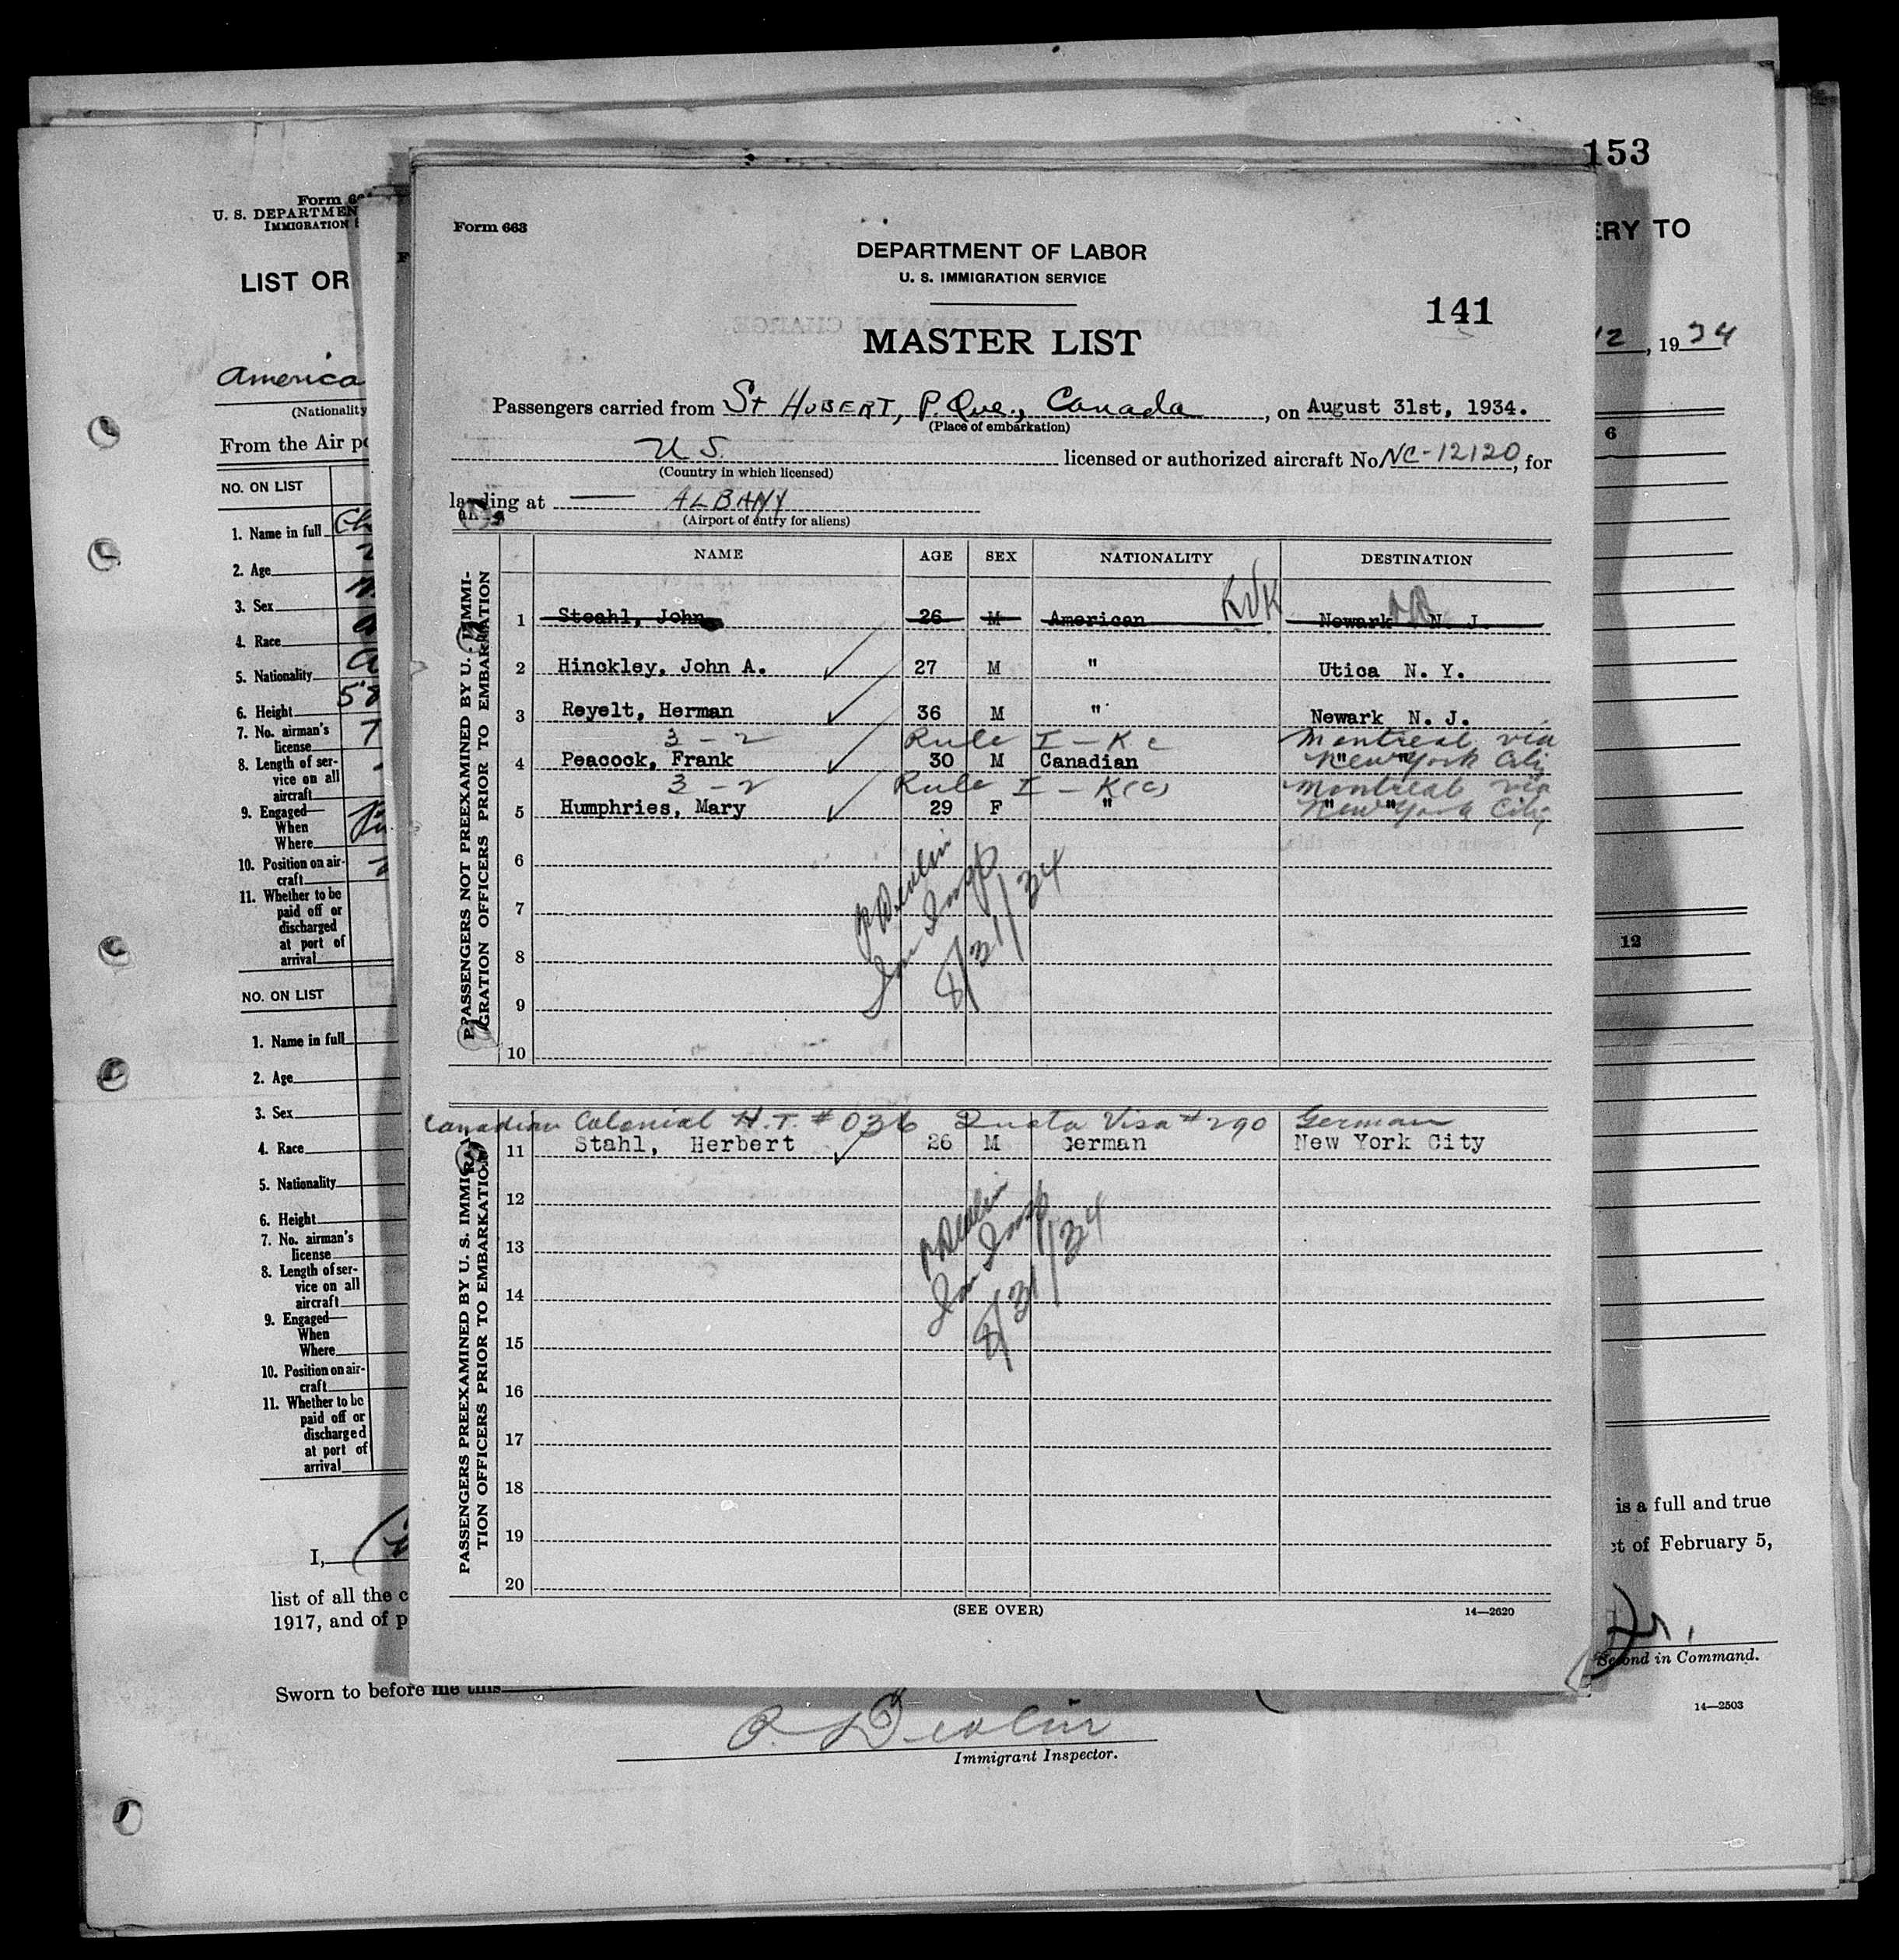 153
Form 66
U. S. DEPARTMEN
IMMIGRATION
LIST OR
ERY TO
12, 1934
America
(Nationality
From the Air po
6
NO. ON LIST
1. Name in full Ch
2. Age
3. Sex
4. Race
5. Nationality
6. Height 5'8
7. No. airman's
license
8. Length of ser-
vice on all
aircraft
9. Engaged—
When
Where
10. Position on air-
craft
11. Whether to be
paid off or
discharged
at port of
arrival
12
NO. ON LIST
1. Name in full
2. Age
3. Sex
4. Race
5. Nationality
6. Height
7. No. airman's
license
8. Length of ser-
vice on all
aircraft
9. Engaged—
When
Where
10. Position on air-
craft
11. Whether to be
paid off or
discharged
at port of
arrival
I,
list of all the c
1917, and of p
is a full and true
ct of February 5,
Jr.
Second in Command.
14—2503
Sworn to before me this
P. Devlin
Immigrant Inspector.
Form 663
DEPARTMENT OF LABOR
U. S. IMMIGRATION SERVICE
141
MASTER LIST
Passengers carried from St HUBERT, P. Que., Canada, on August 31st, 1934.
(Place of embarkation)
U S. licensed or authorized aircraft No NC-12120, for
(Country in which licensed)
landing at — ALBANY
(Airport of entry for aliens)
NAME AGE SEX NATIONALITY DESTINATION
PASSENGERS NOT PREEXAMINED BY U. S. IMMI-
GRATION OFFICERS PRIOR TO EMBARKATION
KVK
1 Steahl, John 26 M American Newark N. J.
2 Hinckley, John A. 27 M " Utica N. Y.
3 Reyelt, Herman 36 M " Newark N. J.
3 - 2 Rule I - K c Montreal via
4 Peacock, Frank 30 M Canadian " " New York City
3 - 2 Rule I - K(c) Montreal via
5 Humphries, Mary 29 F " " " New York City
6
7
8
9
10
P Devlin
Imm Insp
8/31/34
PASSENGERS PREEXAMINED BY U. S. IMMIGRA-
TION OFFICERS PRIOR TO EMBARKATION
Canadian Colonial H.T. # 036 Quota Visa # 290 German
11 Stahl, Herbert 26 M German New York City
12
13
14
15
16
17
18
19
20
P Devlin
Imm Insp
8/31/34
(SEE OVER)
14—2620